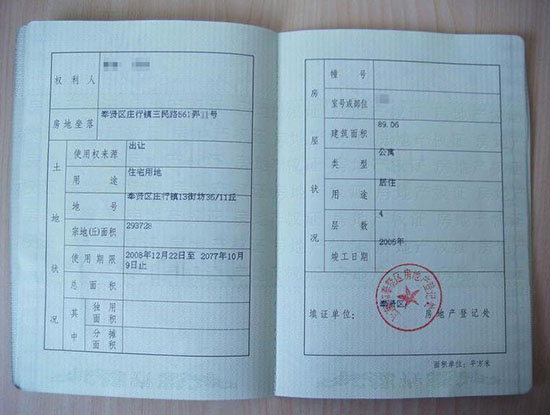 权利人
房地坐落 奉贤区庄行镇三民路661弄 号
土地状况
使用权来源 出让
用途 住宅用地
地号 奉贤区庄行镇13街坊36/11丘
宗地(丘)面积 293728
使用期限 2008年12月22日至 2077年10月
9日止
总面积
其中
独用
面积
分摊
面积
房屋状况
幢号
室号或部位
建筑面积 89.06
类型 公寓
用途 居住
层数 4
竣工日期 2006年
填证单位: 奉贤区 房地产登记处
面积单位: 平方米